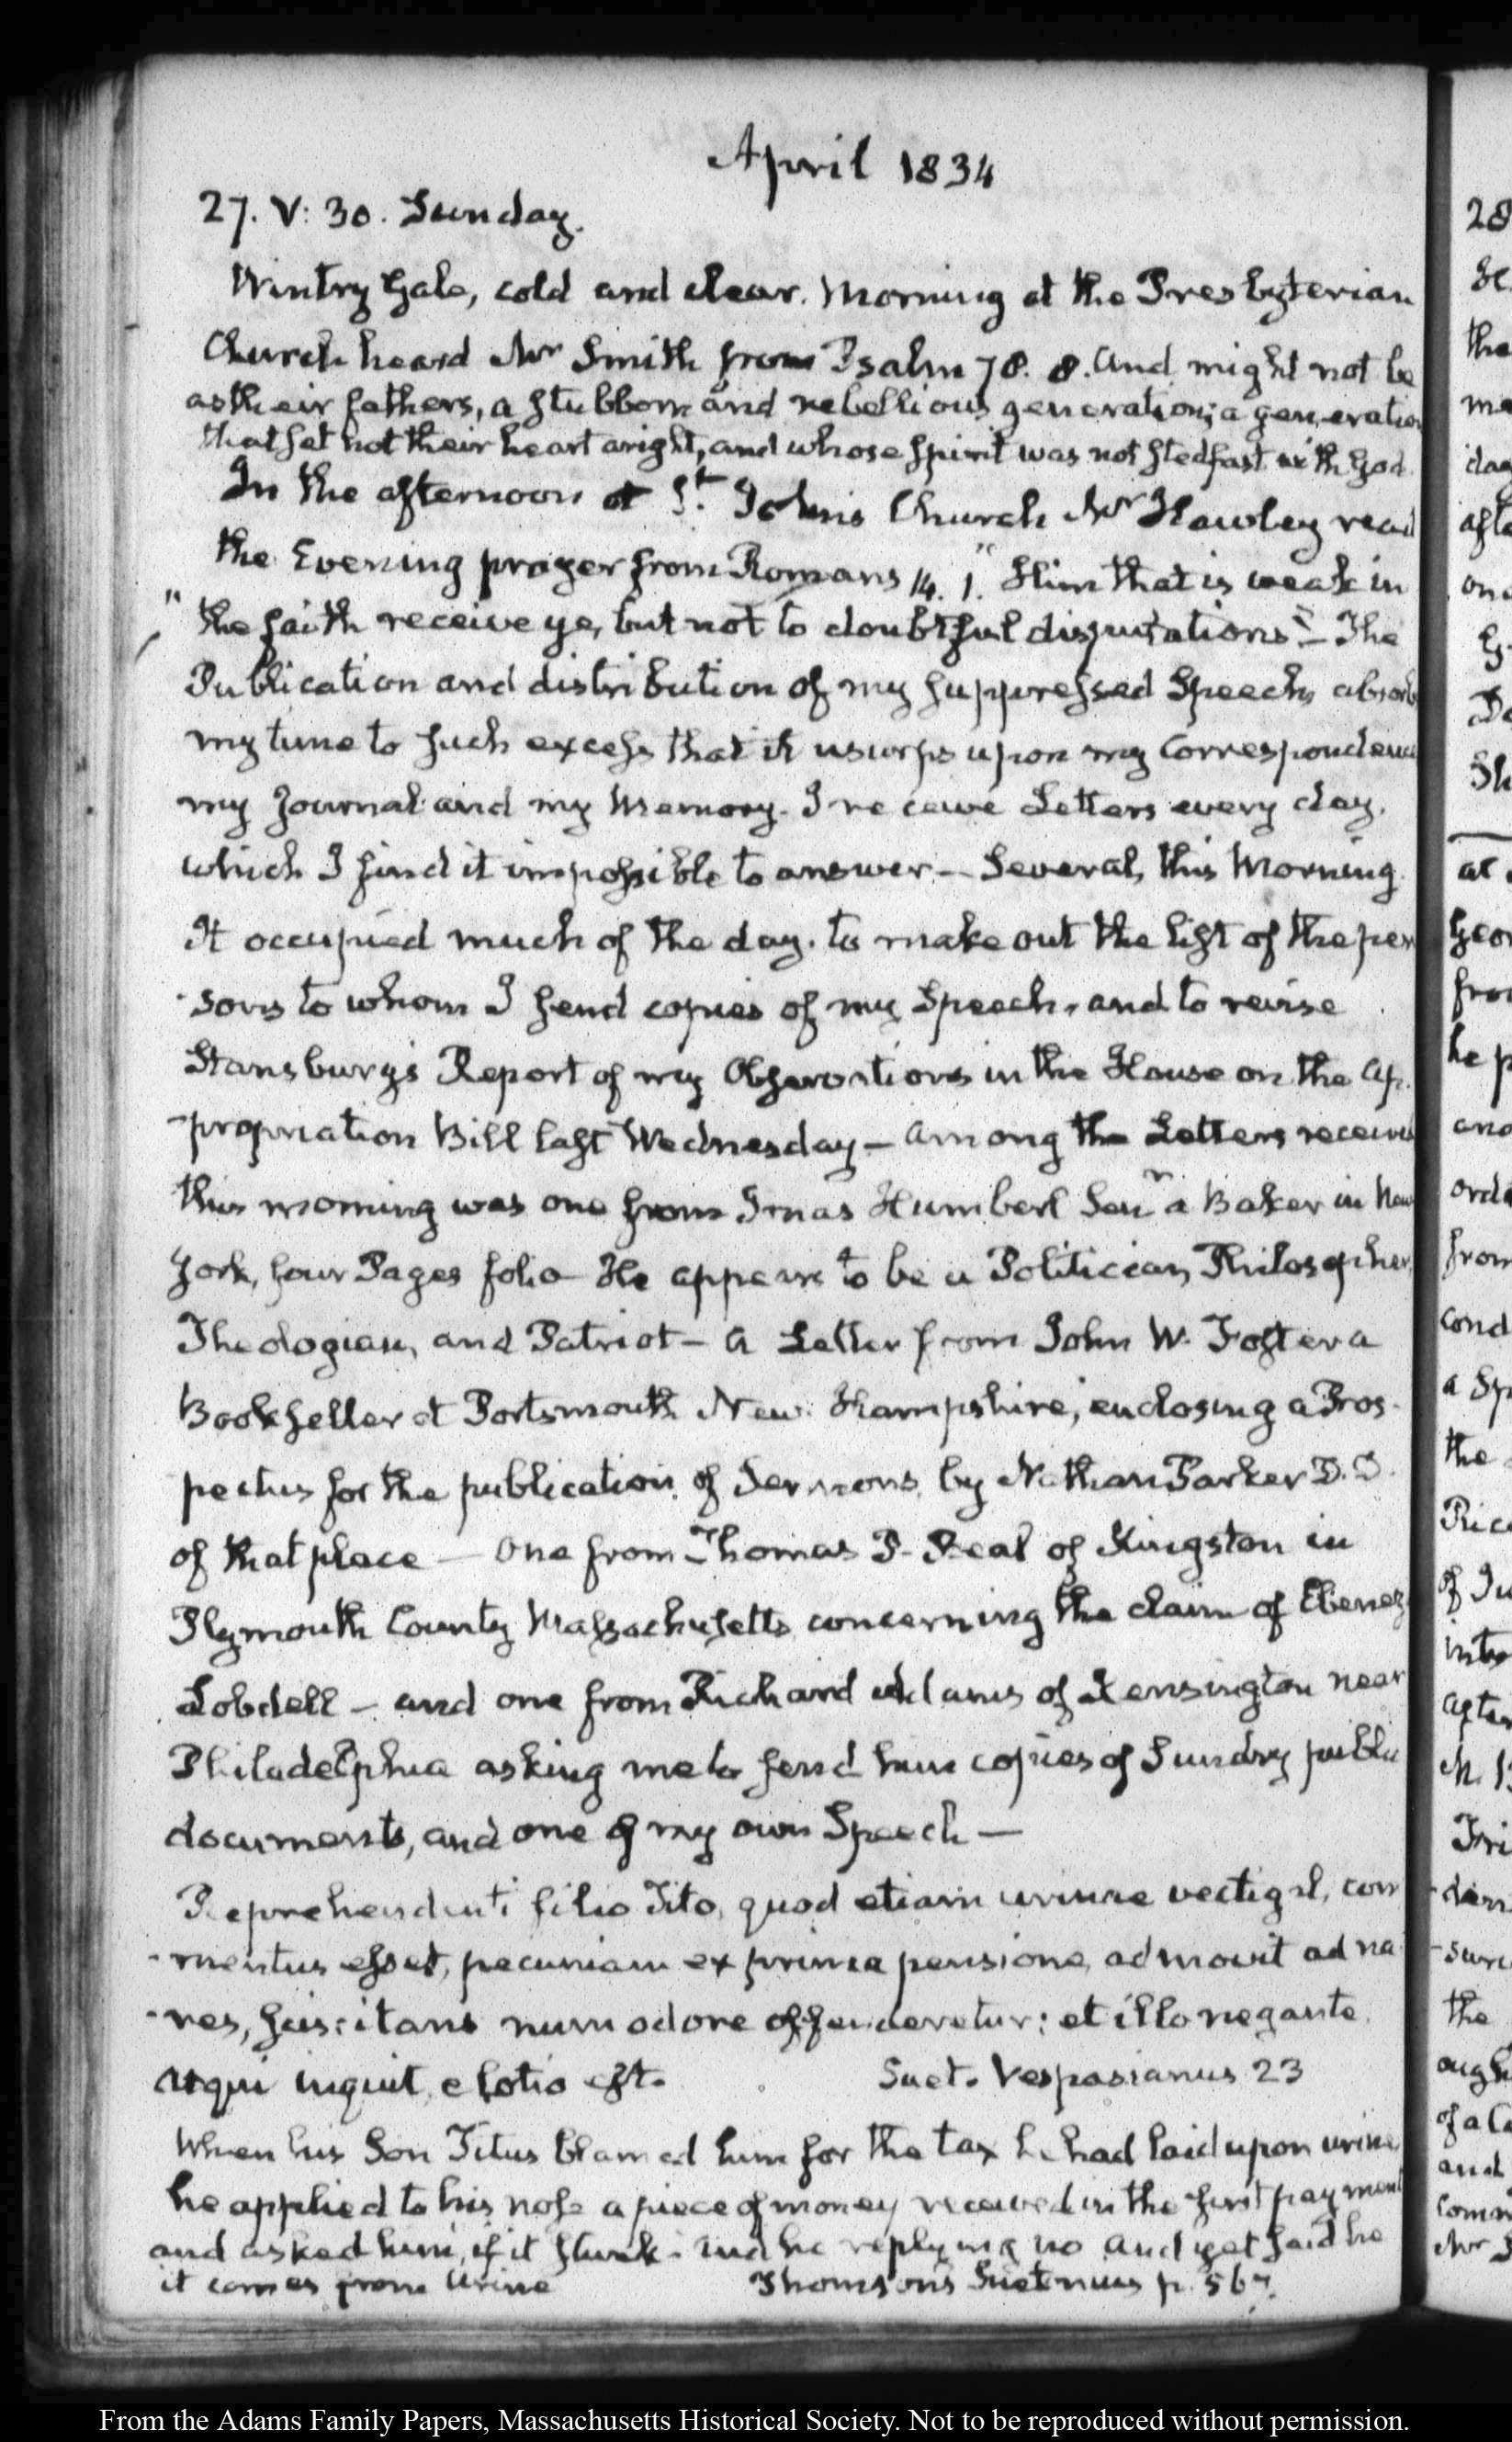 April 1834
27. V: 30. Sunday.
Wintry Gale, cold and clear. Morning at the Presbyterian
Church heard Mr Smith from Psalm 78. 8. And might not be
as their fathers, a stubborn and rebellious generation; a generation
that set not their heart aright, and whose spirit was not stedfast with God.
In the afternoon at St. John's Church Mr Hawley read
the Evening prayer from Romans 14. 1. "Him that is weak in
"the faith receive ye, but not to doubtful disputations" — The
Publication and distribution of my suppressed Speech, absorbs
my time to such excess that it usurps upon my Correspondence
my Journal and my Memory. I receive Letters every day,
which I find it impossible to answer — Several, this Morning.
It occupied much of the day, to make out the list of the per
-sons to whom I send copies of my Speech, and to revise
Stansbury's Report of my Observations in the House on the Ap-
-propriation Bill last Wednesday — Among the Letters received
this morning was one from Jonas Humbert Senr a Baker in New
York, four Pages folio He appears to be a Politician, Philosopher,
Theologian, and Patriot — A Letter from John W. Foster a
Bookseller at Portsmouth New Hampshire, enclosing a Pros-
pectus for the publication of Sermons, by Nathan Parker D.D.
of that place — One from Thomas P. Beal of Kingston in
Plymouth County Massachusetts concerning the claim of Ebenez
Lobdell — and one from Richard Adams of Kensington near
Philadelphia asking me to send him copies of Sundry public
documents, and one of my own Speech —
Reprehendenti filio Tito, quod etiam urinae vectigal, com
-mentus esset, pecuniam ex prima pensione, admovit ad na
-res, suscitans num odore offenderetur; et illo negante,
atqui inquit, e lotio est.
Suet. Vespasianus 23
When his Son Titus blamed him for the tax he had laid upon urine,
he applied to his nose a piece of money received in the first payment
and asked him, if it stunk. And he replying no And yet said he
it comes from Urine
Thomson's Suetonius p. 567.
28
the
From the Adams Family Papers, Massachusetts Historical Society. Not to be reproduced without permission.